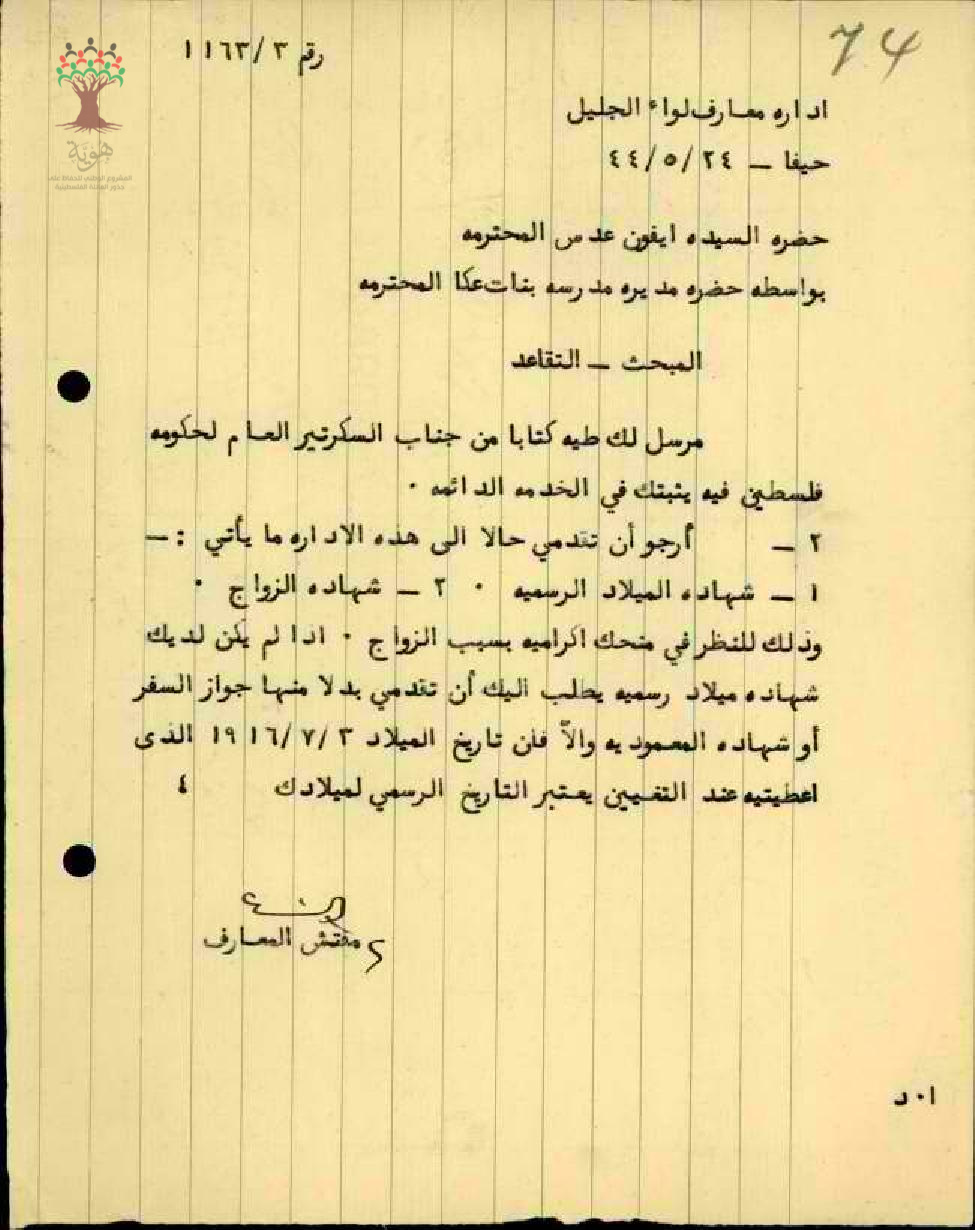 74
رقم ٣/١١٦٣
هوية
المشروع الوطني للحفاظ على
جذور العائلة الفلسطينية
اداره معارف لواء الجليل
حيفا – ٢٤/٥/٤٤
حضره السيده ايفون عدس المحترمه
بواسطه حضره مديره مدرسه بنات عكا المحترمه
المبحث – التقاعد
مرسل لك طيه كتابا من جناب السكرتير العام لحكومه
فلسطين فيه يثبتك في الخدمه الدائمه ٠
٢ – أرجو أن تقدمي حالا الى هذه الاداره ما يأتي :–
١ – شهاده الميلاد الرسميه ٠ ٢ – شهاده الزواج ٠
وذلك للنظر في منحك اكراميه بسبب الزواج ٠ اذا لم يكن لديك
شهاده ميلاد رسميه يطلب اليك أن تقدمي بدلا منها جواز السفر
أو شهاده المعموديه والاّ فان تاريخ الميلاد ١٩١٦/٧/٣ الذى
اعطيتيه عند التعيين يعتبر التاريخ الرسمي لميلادك ٤
مفتش المعارف
ا٠د